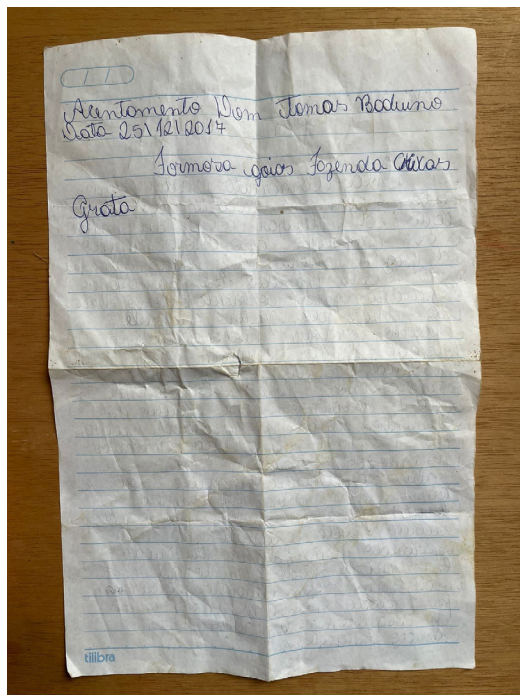 Acentamento Dom Tomas Boduino
Data 25\12\2017
Formosa goias Fazenda
Grata
tilibra